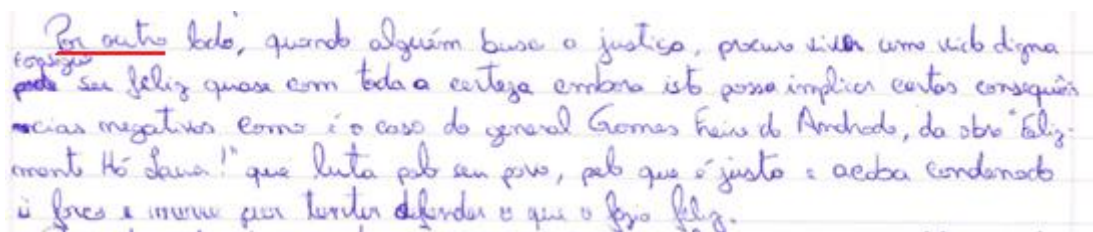 Por outro lado, quando alguém busca a justiça, procura viver uma vida digna
consegue
pode ser feliz quase com toda a certeza embora isto possa implicar certas consequên-
cias negativas como é o caso do general Gomes Freire de Andrade, da obra "Feliz-
mente Há Luar!" que luta pelo seu povo, pelo que é justo e acaba condenado
à forca e morre por tentar defender o que o fazia feliz.